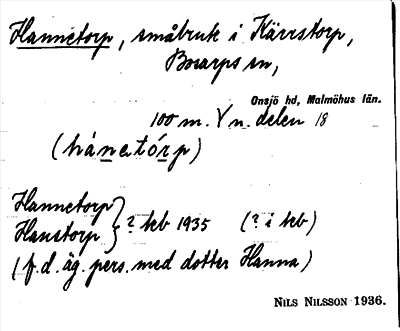 Hannetorp, småbruk i Kärrstorp,
Bosarps sn,
Onsjö hd, Malmöhus län.
100 m. V n. delen 18
(hánetórp)
Hannetorp
Hanstorp } ? kb 1935 (? i kb)
(f.d. äg. pers. med dotter Hanna)
Nils Nilsson 1936.